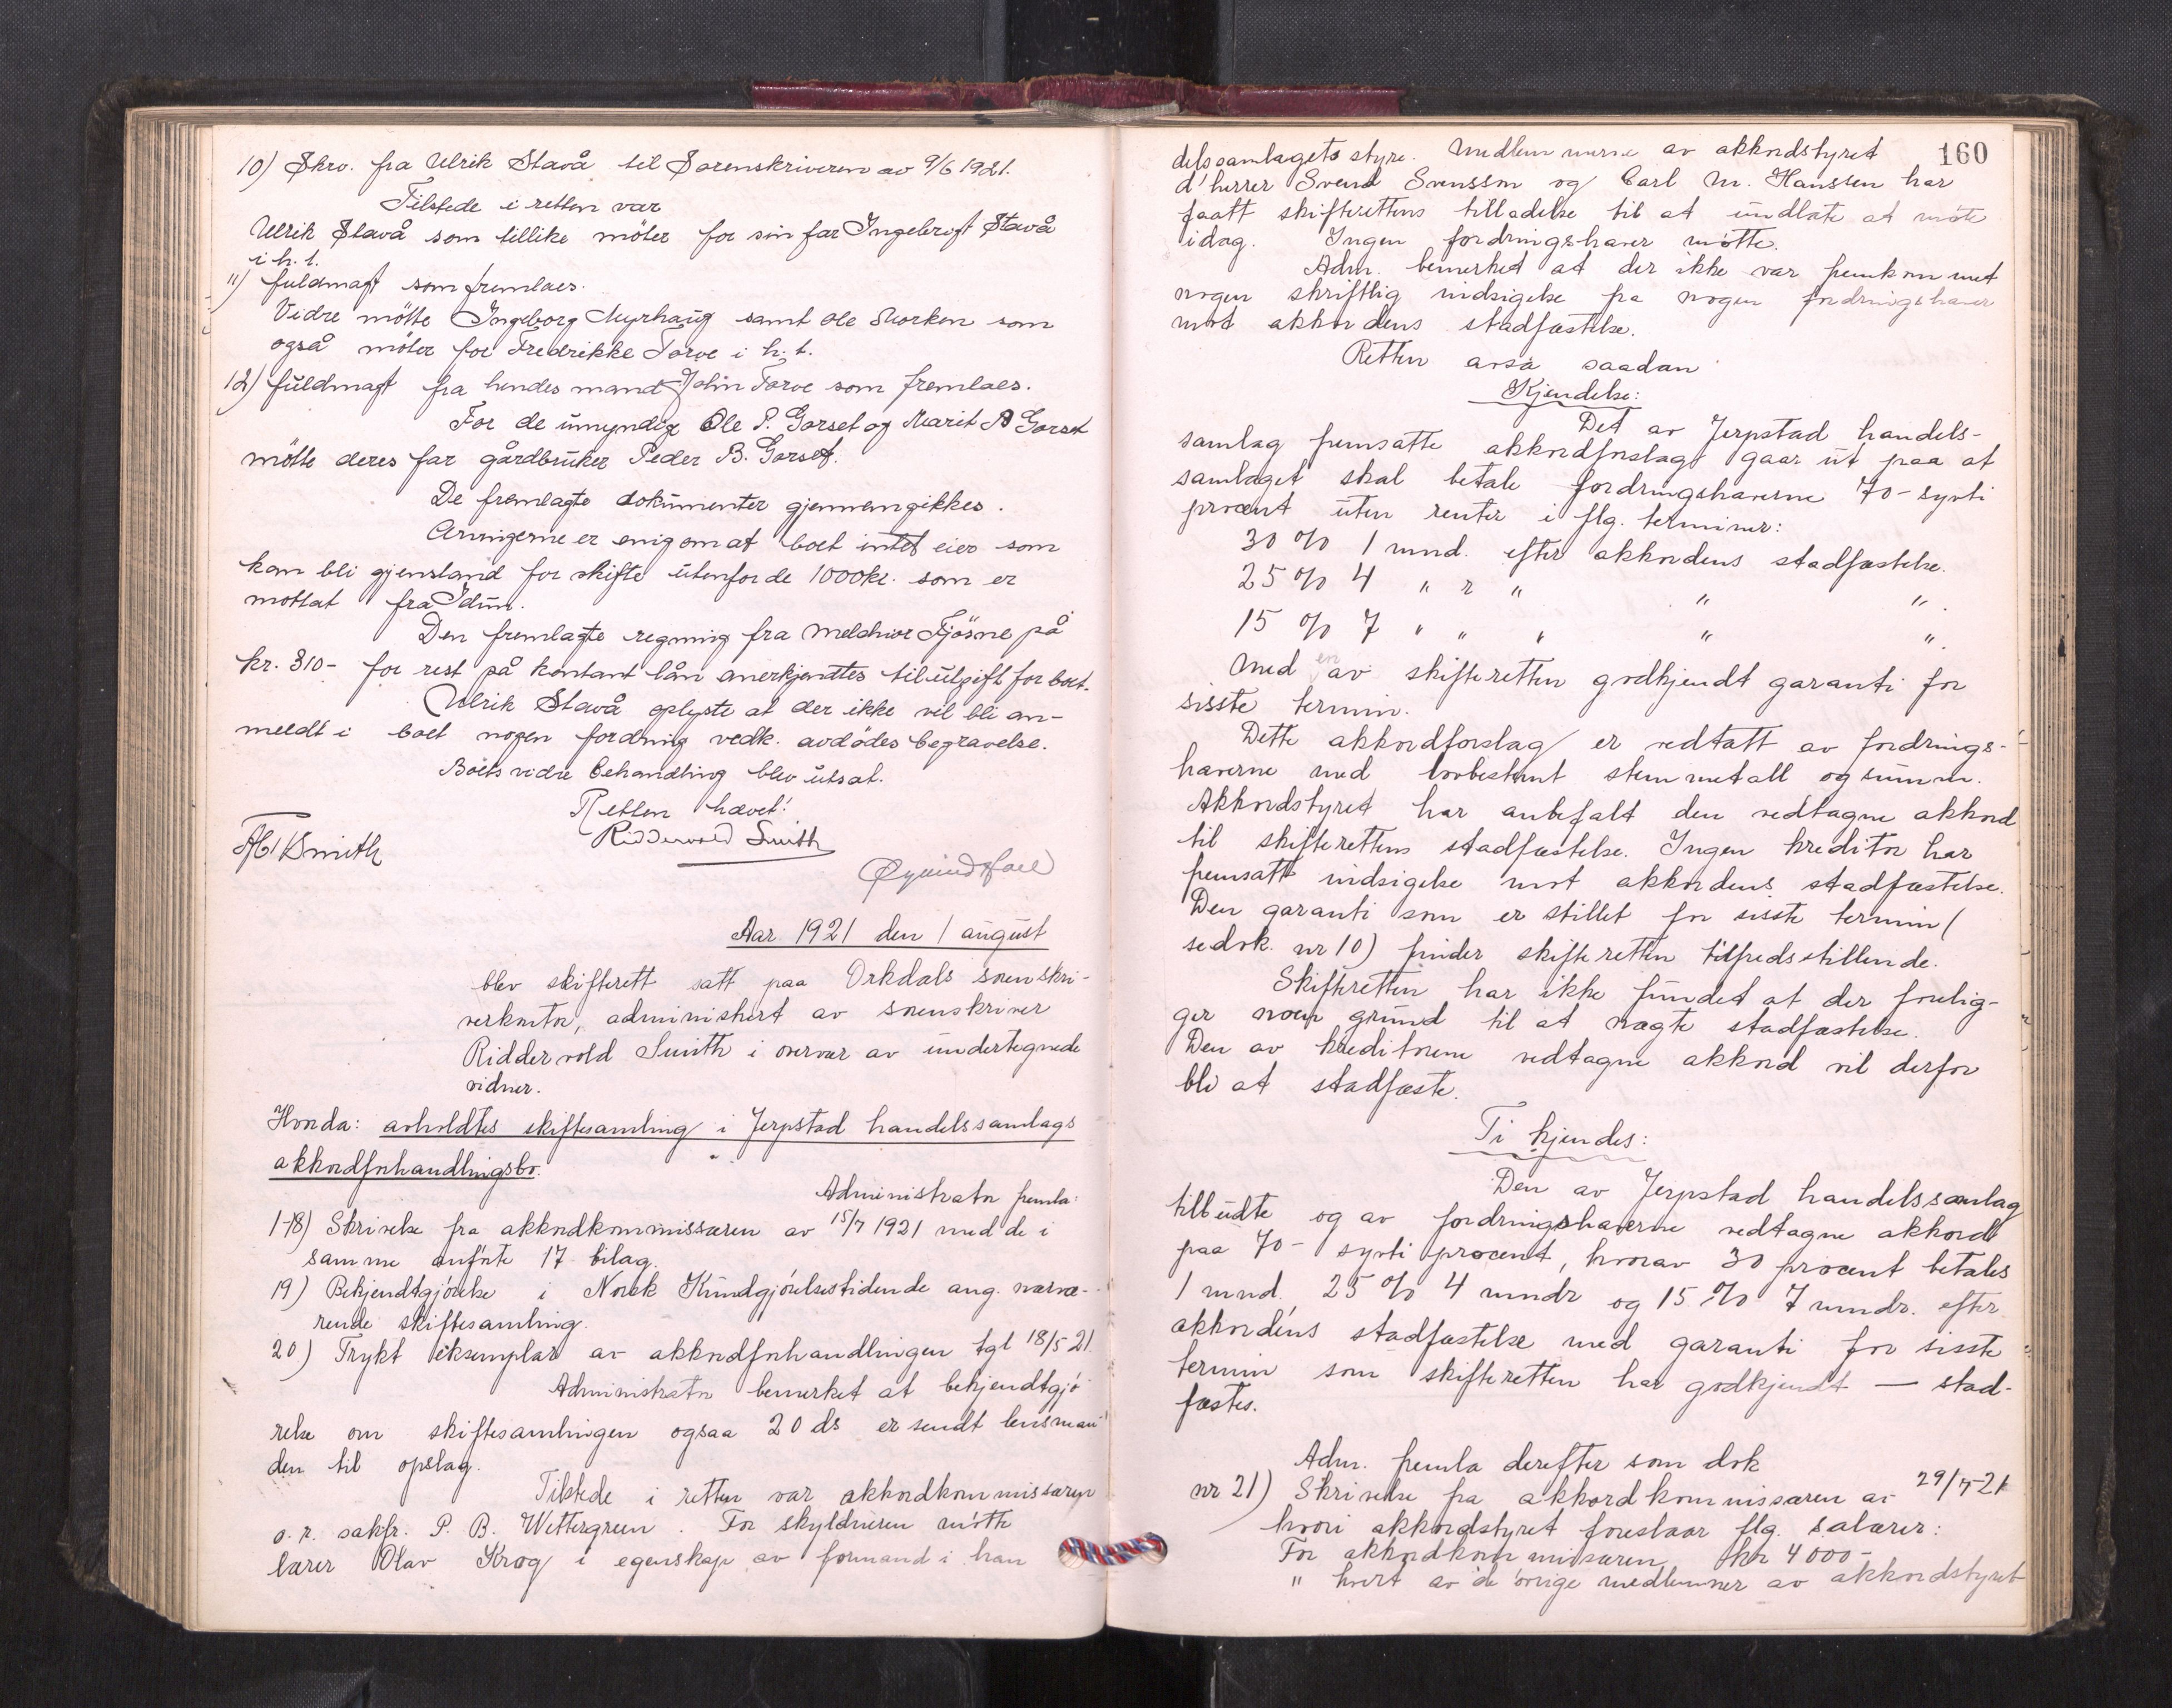 10) Skrv. fra Ulrik Stavå til Sorenskriveren av 9/6 1921.
Tilstede i retten var
Ulrik Stavå som tillike möter for sin far Ingebrigt Stavå
i h. t.
11) fuldmagt som fremlaes.
Videre mötte Ingeborg Myrhaug samt Ole Skorken som
også möter for Fredrikke Torve i h. t.
12) fuldmagt fra hendes mand John Torve som fremlaes.
For de umyndige Ole P. Gorset og Marit P Gorset
mötte deres far gårdbruker Peder B. Gorset.
De fremlagte dokumenter gjennemgikkes.
Arvingerne er enig om at boet intet eier som
kan bli gjenstand for skifte utenfor de 1000kr. som er
mottat fra Idun.
Den fremlagte regning fra Melchior Fjösne på
kr. 310- for rest på kontant lån anerkjendtes til utgift for boet.
Ulrik Stavå oplyste at der ikke vil bli an-
meldt i boet nogen fordring vedk. avdödes begravelse.
Boets videre behandling blev utsat.
Retten hævet!
Ridderwold Smith
Smith
Øyvind
Aar 1921 den 1 august
blev skifterett satt paa Orkdals sorenskri-
verkontor, administrert av sorenskriver
Riddervold Smith i overvær av undertegnede
vidner.
Hvorda: avholdtes skiftesamling i Jerpstad handelssamlags
akkordforhandlingsbo.
Administrator fremla:
1-18) Skrivelse fra akkordkommissæren av 15/7 1921 med de i
samme anförte 17 bilag.
19) Bekjendtgjörelse i Norsk Kundgjörelsestidende ang. nærvæ-
rende skiftesamling.
20) Trykt eksemplar av akkordforhandlingen tgl 18/5 21.
Administrator bemerket at bekjendtgjö-
relse om skiftesamlingen ogsaa 20 ds er sendt lensman-
den til opslag.
Tilstede i retten var akkordkommissæren
o. r. sakfr. P. B. Wettergreen. For skyldneren mötte
lærer Olav Krog i egenskap av formand i han
160
delssamlagets styre. Medlemmerne av akkordstyret
d'herrer Svend Svensson og Carl M. Hanssen har
faatt skifterettens tilladelse til at undlate at möte
idag. Ingen fordringshaver mötte.
Adm. bemerket at der ikke var fremkommet
nogen skriftlig indsigelse fra nogen fordringshaver
mot akkordens stadfæstelse.
Retten avsa saadan
Kjendelse:
Det av Jerpstad handels-
samlag fremsatte akkordforslag gaar ut paa at
samlaget skal betale fordringshaverne 70- sytti
procent uten renter i flg. terminer:
30 % 1 mnd. efter akkordens stadfæstelse.
25 % 4 " r " " ".
15 % 7 " " " " ".
Med en av skifteretten godkjendt garanti for
sisste termin.
Dette akkordforslag er vedtatt av fordrings-
haverne med lovbestemt stemmetall og summ.
Akkordstyret har anbefalt den vedtagne akkord
til skifterettens stadfæstelse. Ingen kreditor har
fremsatt indsigelse mot akkordens stadfæstelse.
Den garanti som er stillet for sisste termin (
se dok. nr 10) finder skifteretten tilfredsstillende.
Skifteretten har ikke fundet at der forelig-
ger noen grund til at nægte stadfæstelse.
Den av kreditorene vedtagne akkord vil derfor
bli at stadfæste.
Ti kjendes:
Den av Jerpstad handelssamlag
tilbudte og av fordringshaverne vedtagne akkord
paa 70- sytti procent, hvorav 30 procent betales
1 mnd. 25 % 4 mndr og 15 % 7 mndr. efter
akkordens stadfæstelse med garanti for sisste
termin som skifteretten har godkjendt — stad-
fæstes.
Adm. fremla derefter som dok
nr 21) Skrivelse fra akkordkommissæren av 29/7-21
hvori akkordstyret foreslaar flg. salærer:
For akkordkommissæren kr 4000-
" hvert av de övrige medlemmer av akkordstyret